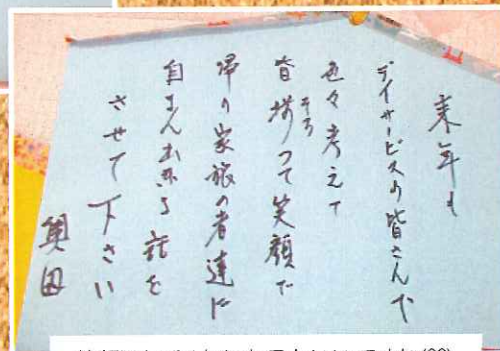 来年も
デイサービスの皆さんで
色々考えて
皆揃って笑顔で
そろ
帰り家族の者達に
自まん出来る話を
させて下さい
奥田